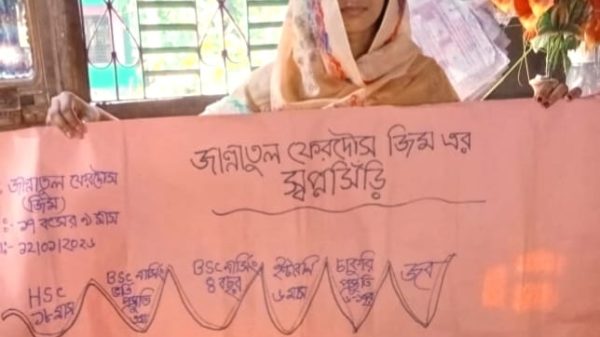 জান্নাতুল ফেরদৌস জিম এর
স্বপ্নসিঁড়ি
জান্নাতুল ফেরদৌস
(জিম)
১৭ বৎসর ৯ মাস
১২/০১/২০২৬
HSC
১৮ মাস
BSc নার্সিং
ভর্তি
প্রস্তুতি
BSc নার্সিং
৪ বছর
ইন্টার্নি
৬ মাস
চাকুরি
প্রস্তুতি
জব